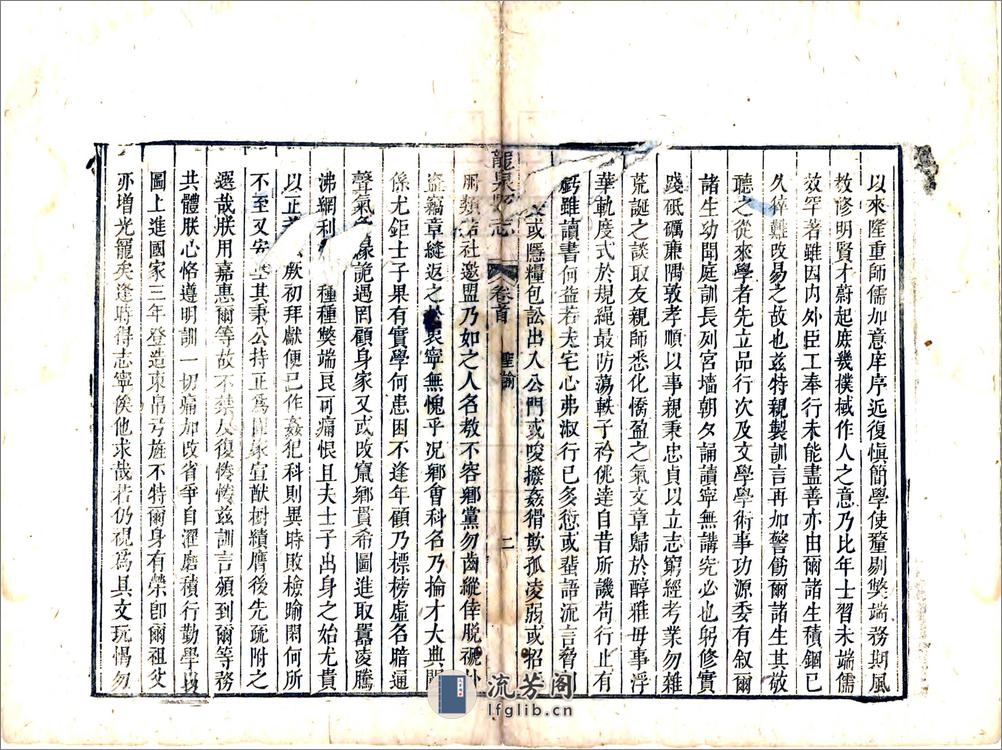 以來隆重師儒加意庠序近復慎簡學使釐剔弊端務期風
教修明賢才蔚起庶幾樸棫作人之意乃比年士習未端儒
效罕著雖因內外臣工奉行未能盡善亦由爾諸生積錮已
久猝難改易之故也兹特親製訓言再加警飭爾諸生其敬
聽之從來學者先立品行次及文學學術事功源委有叙爾
諸生幼聞庭訓長列宮墻朝夕誦讀寧無講究必也躬修實
踐砥礪廉隅敦孝順以事親秉忠貞以立志窮經考業勿雜
荒誕之談取友親師悉化憍盈之氣文章歸於醇雅毋事浮
華軌度式於規繩最防蕩軼子衿佻達自昔所譏苟行止有
虧雖讀書何益若夫宅心弗淑行已多愆或蜚語流言脅制
或隱糧包訟出入公門或唆撥姦猾欺孤凌弱或招
龍泉縣志
卷首
聖諭
二
朋類結社邀盟乃如之人名教不容鄉黨勿齒縱倖脫褫扑
盜竊章縫返之於衷寧無愧乎況鄉會科名乃掄才大典關
係尤鉅士子果有實學何患困不逢年顧乃標榜虛名暗通
聲氣 緣詭遇罔顧身家又或改竄鄉貫希圖進取囂凌騰
沸網利 種種弊端良可痛恨且夫士子出身之始尤貴
以正 厥初拜獻便已作姦犯科則異時敗檢踰閑何所
不至又安 其秉公持正為 宣猷樹績膺後先疏附之
選哉朕用嘉惠爾等故不禁反復惓惓兹訓言頒到爾等務
共體朕心恪遵明訓一切痛加改省爭自濯磨積行勤學以
圖上進國家三年登造束帛弓旌不特爾身有榮卽爾祖父
亦增光寵矣逢時得志寧俟他求哉若仍視為具文玩愒勿
流芳阁
lfglib.cn